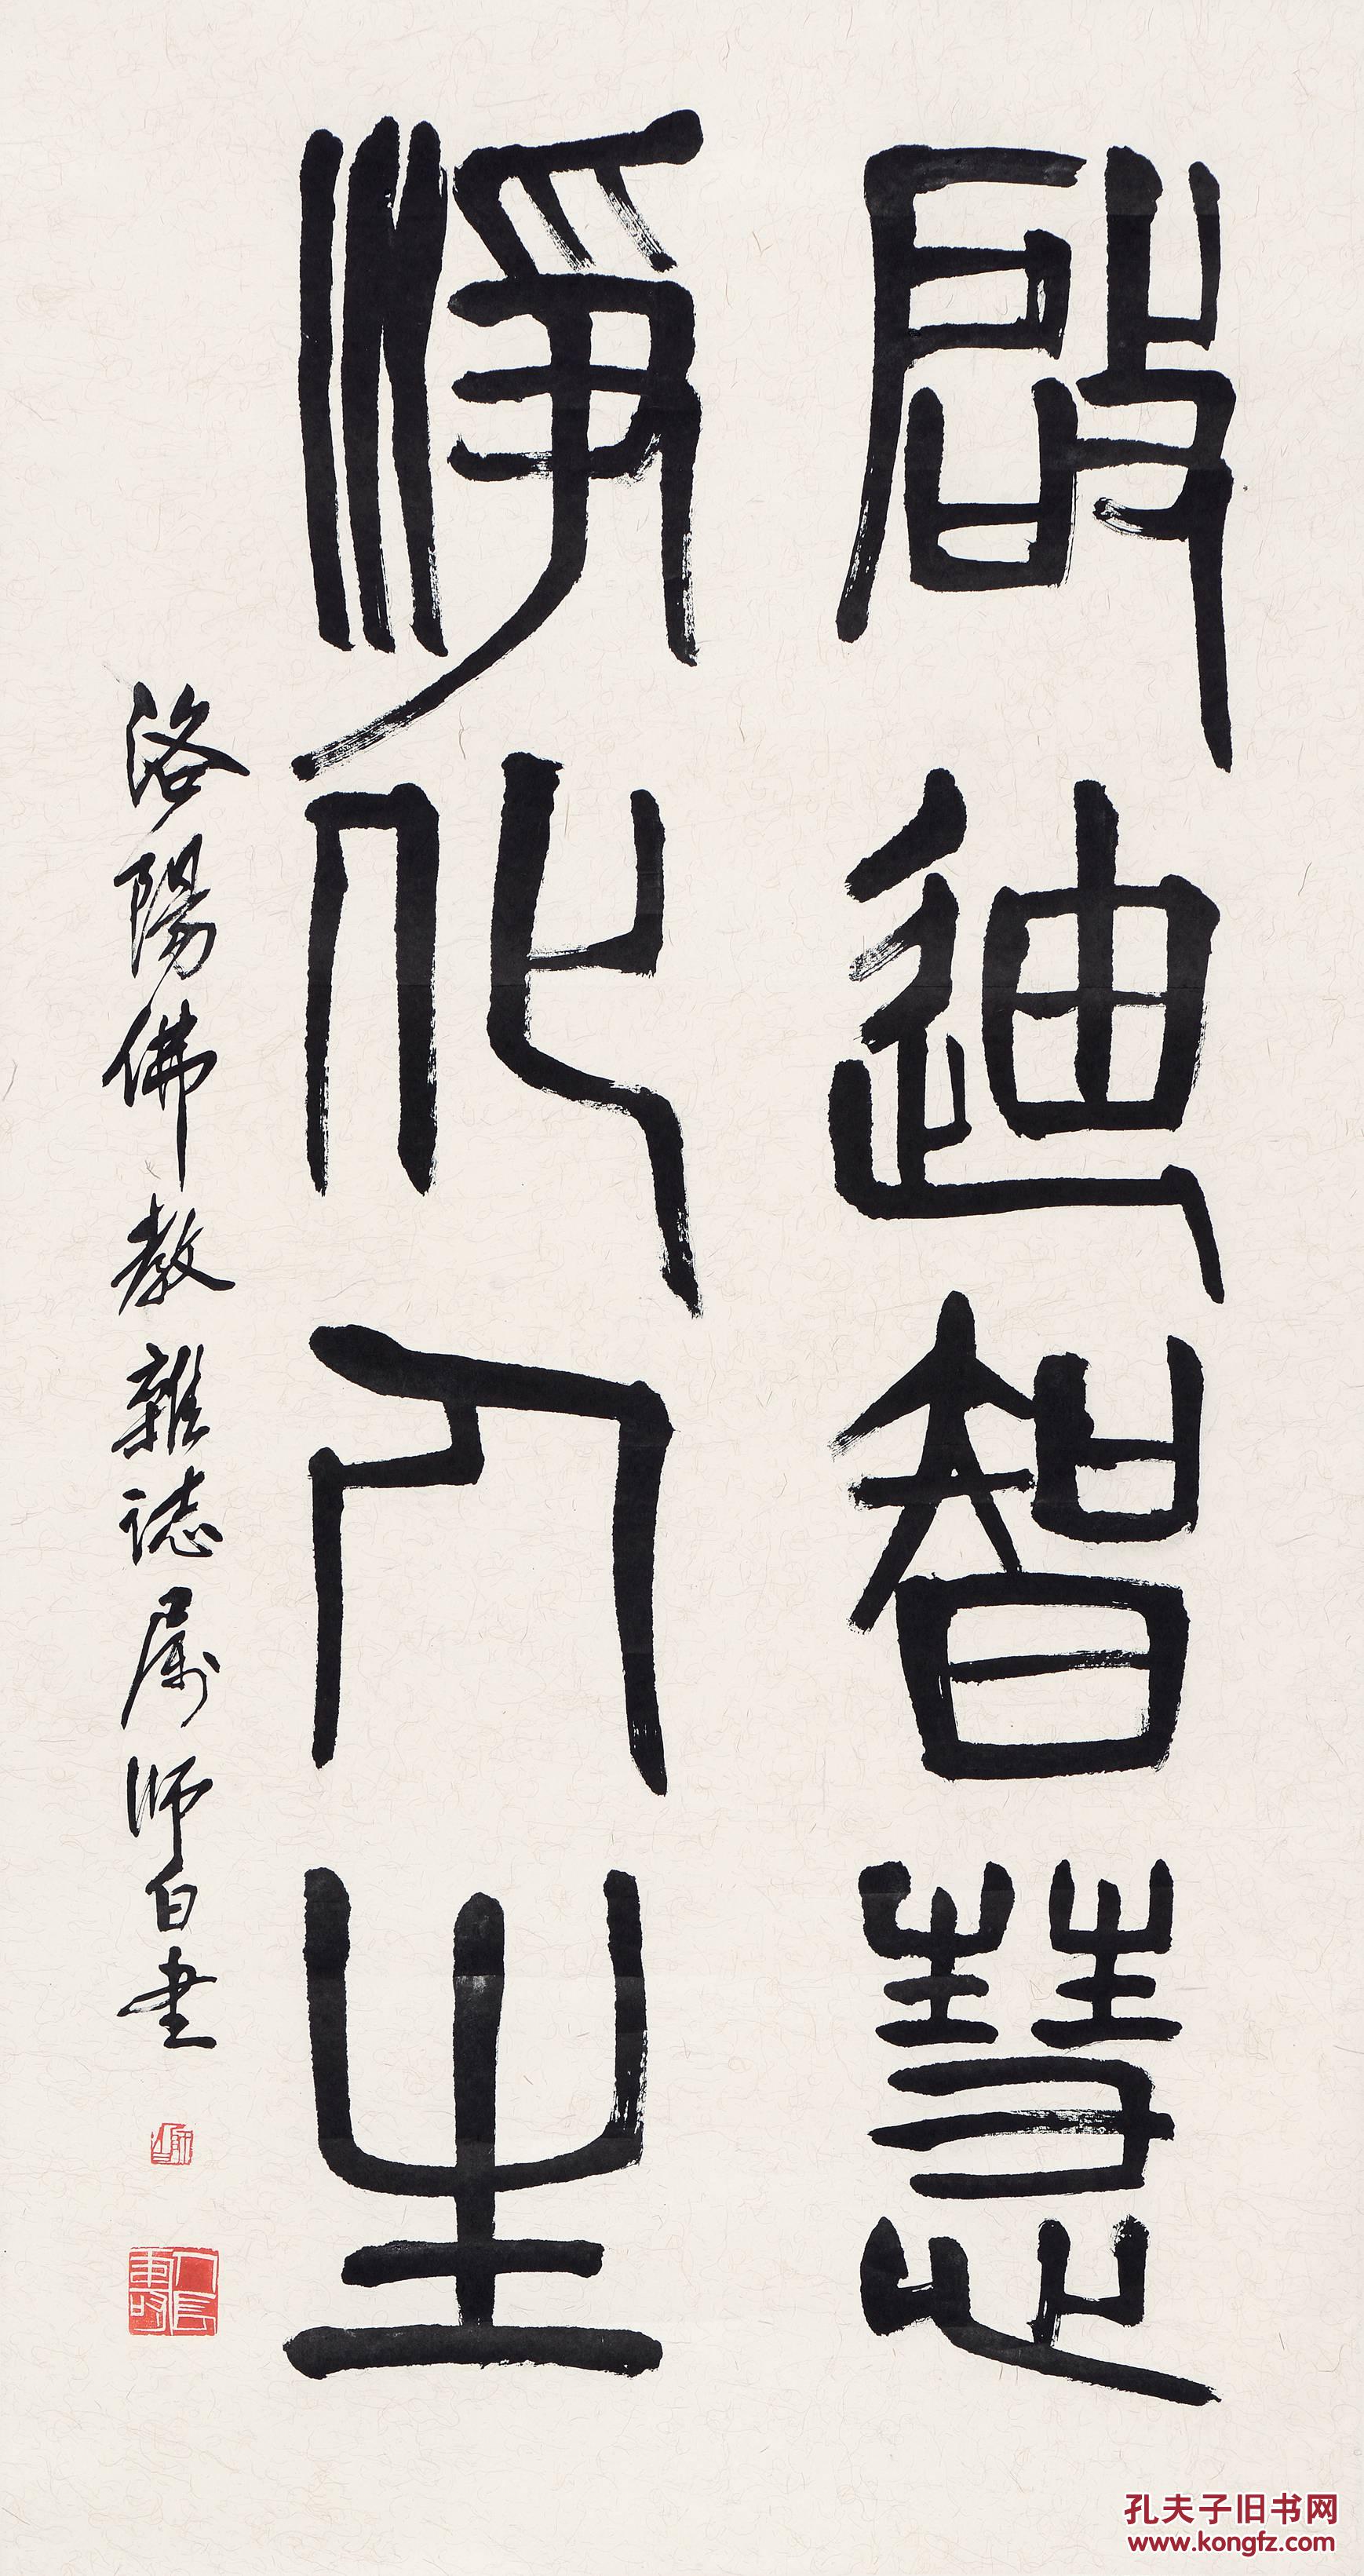 啟迪智慧
淨化人生
洛陽佛教雜誌属師白書
孔夫子旧书网
www.kongfz.com